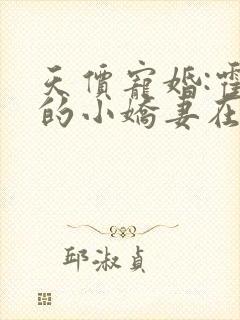 天價寵婚:霍
的小嬌妻在
邱淑貞